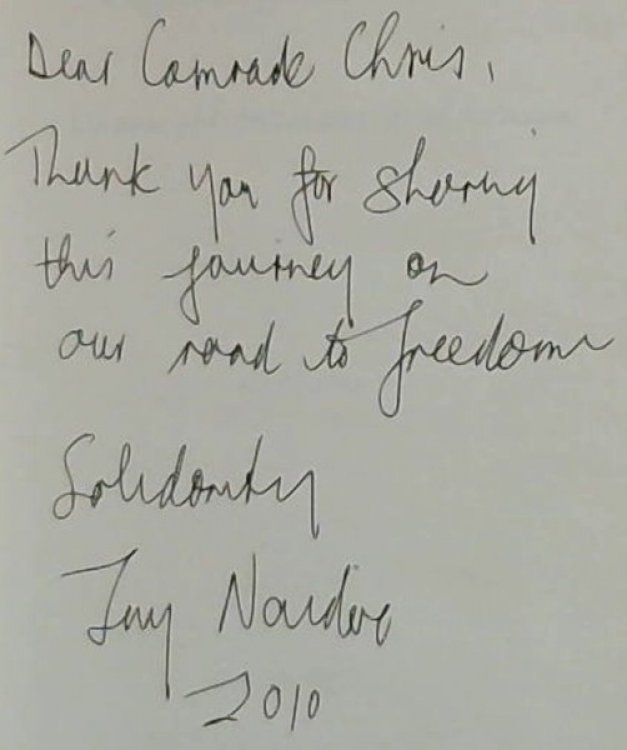 Dear Comrade Chris,
Thank you for sharing
this journey on
our road to freedom
Solidarity
Jay Naidoo
2010